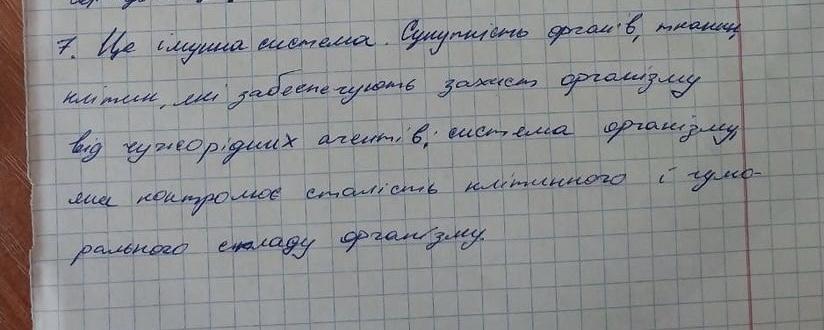 7. Це імунна система. Сукупність органів, тканин,
клітин, які забеспечують захист організму
від чужорідних агентів; система організму,
яка контролює сталість клітинного і гумо-
рального складу організму.